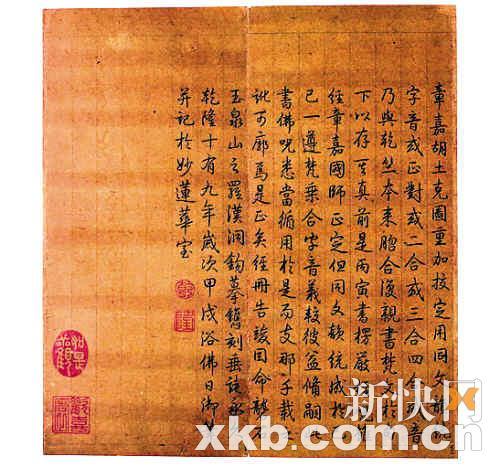 章嘉胡土克圖重加校定用同文韻統
字音或正對或二合或三合四合成音
乃與乾竺本來脗合復親書梵文於
下以存其真前是丙寅書楞嚴
經章嘉國師正定但同文韻統成於
己一遵梵乘合字音義較彼益備嗣此
書佛咒悉當循用於是而支那千載之
訛可廓焉是正矣經冊告竣因命龕石
玉泉山之羅漢洞鈎摹鐫刻垂諸永
乾隆十有九年歲次甲戌浴佛日御
并記於妙蓮華室
如是
我觀
新快网
xkb.com.cn